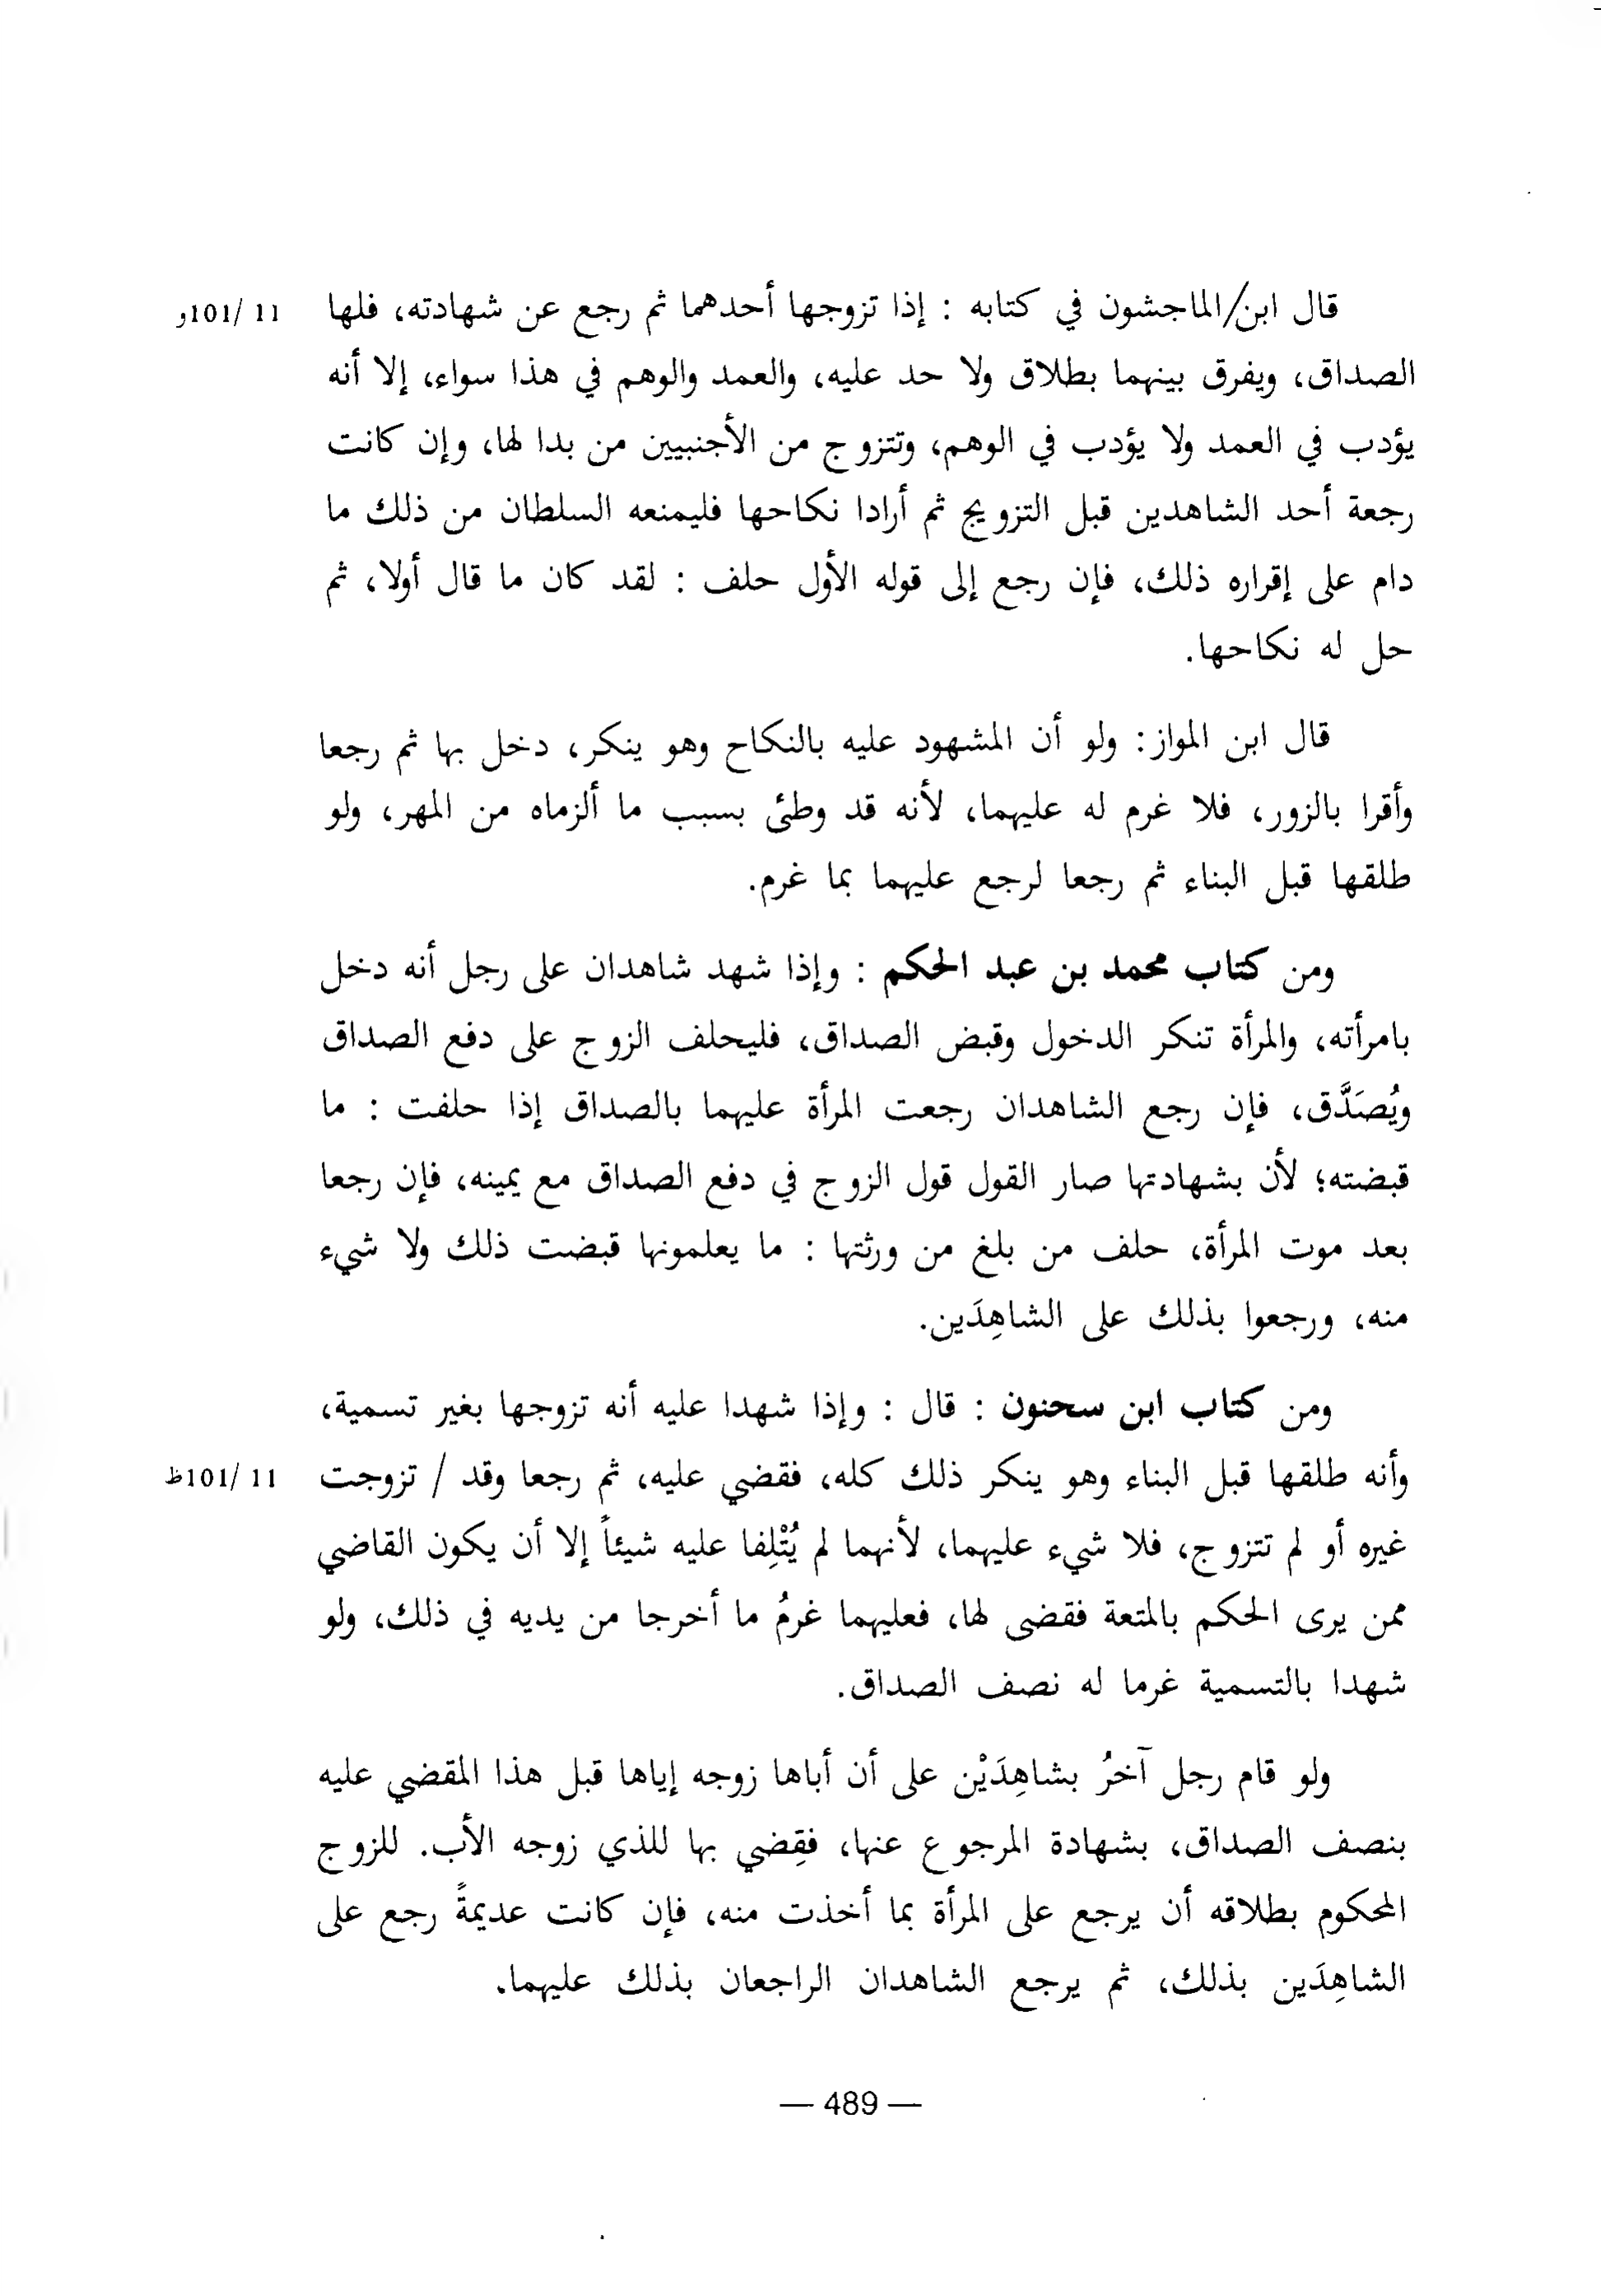 قال ابن/الماجشون في كتابه : إذا تزوجها أحدهما ثم رجع عن شهادته، فلها 11 /101و
الصداق، ويفرق بينهما بطلاق ولا حد عليه، والعمد والوهم في هذا سواء، إلا أنه
يؤدب في العمد ولا يؤدب في الوهم، وتتزوج من الأجنبيين من بدا لها، وإن كانت
رجعة أحد الشاهدين قبل التزويج ثم أرادا نكاحها فليمنعه السلطان من ذلك ما
دام على إقراره ذلك، فإن رجع إلى قوله الأول حلف : لقد كان ما قال أولا، ثم
حل له نكاحها.
قال ابن المواز: ولو أن المشهود عليه بالنكاح وهو ينكر، دخل بها ثم رجعا
وأقرا بالزور، فلا غرم له عليهما، لأنه قد وطئ بسبب ما ألزماه من المهر، ولو
طلقها قبل البناء ثم رجعا لرجع عليهما بما غرم.
ومن كتاب محمد بن عبد الحكم : وإذا شهد شاهدان على رجل أنه دخل
بامرأته، والمرأة تنكر الدخول وقبض الصداق، فليحلف الزوج على دفع الصداق
ويُصَدَّق، فإن رجع الشاهدان رجعت المرأة عليهما بالصداق إذا حلفت : ما
قبضته؛ لأن بشهادتها صار القول قول الزوج في دفع الصداق مع يمينه، فإن رجعا
بعد موت المرأة، حلف من بلغ من ورثتها : ما يعلمونها قبضت ذلك ولا شيء
منه، ورجعوا بذلك على الشاهِدَين.
ومن كتاب ابن سحنون : قال : وإذا شهدا عليه أنه تزوجها بغير تسمية،
وأنه طلقها قبل البناء وهو ينكر ذلك كله، فقضي عليه، ثم رجعا وقد / تزوجت 11 /101ظ
غيره أو لم تتزوج، فلا شيء عليهما، لأنهما لم يُتْلِفا عليه شيئاً إلا أن يكون القاضي
ممن يرى الحكم بالمتعة فقضى لها، فعليهما غرمُ ما أخرجا من يديه في ذلك، ولو
شهدا بالتسمية غرما له نصف الصداق.
ولو قام رجل آخرُ بشاهِدَيْن على أن أباها زوجه إياها قبل هذا المقضي عليه
بنصف الصداق، بشهادة المرجوع عنها، فقِضي بها للذي زوجه الأب. للزوج
المحكوم بطلاقه أن يرجع على المرأة بما أخذت منه، فإن كانت عديمةً رجع على
الشاهِدَين بذلك، ثم يرجع الشاهدان الراجعان بذلك عليهما.
— 489 —